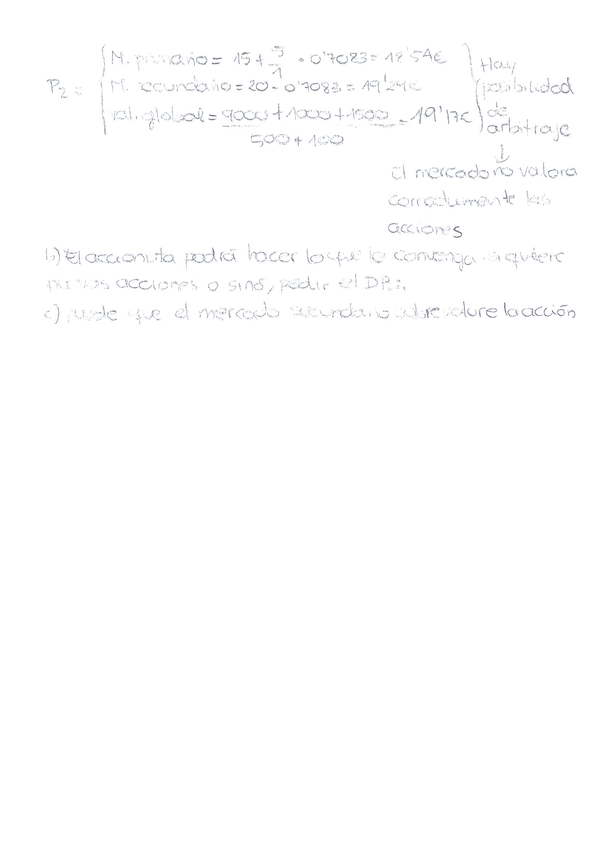 M. primario = 15 + 5/1 · 0'7083 = 18'54€
P2 = M. secundario = 20 - 0'7083 = 19'29€
Val. global = 9000 + 1000 + 1500 / 500 + 100 = 19'17€
Hay
posibilidad
de
arbitraje
↓
El mercado no valora
correctamente las
acciones
b) El accionista podrá hacer lo que le convenga si quiere
acciones o sinó, pedir el
c) puede que el mercado secundario sobrevalore la acción